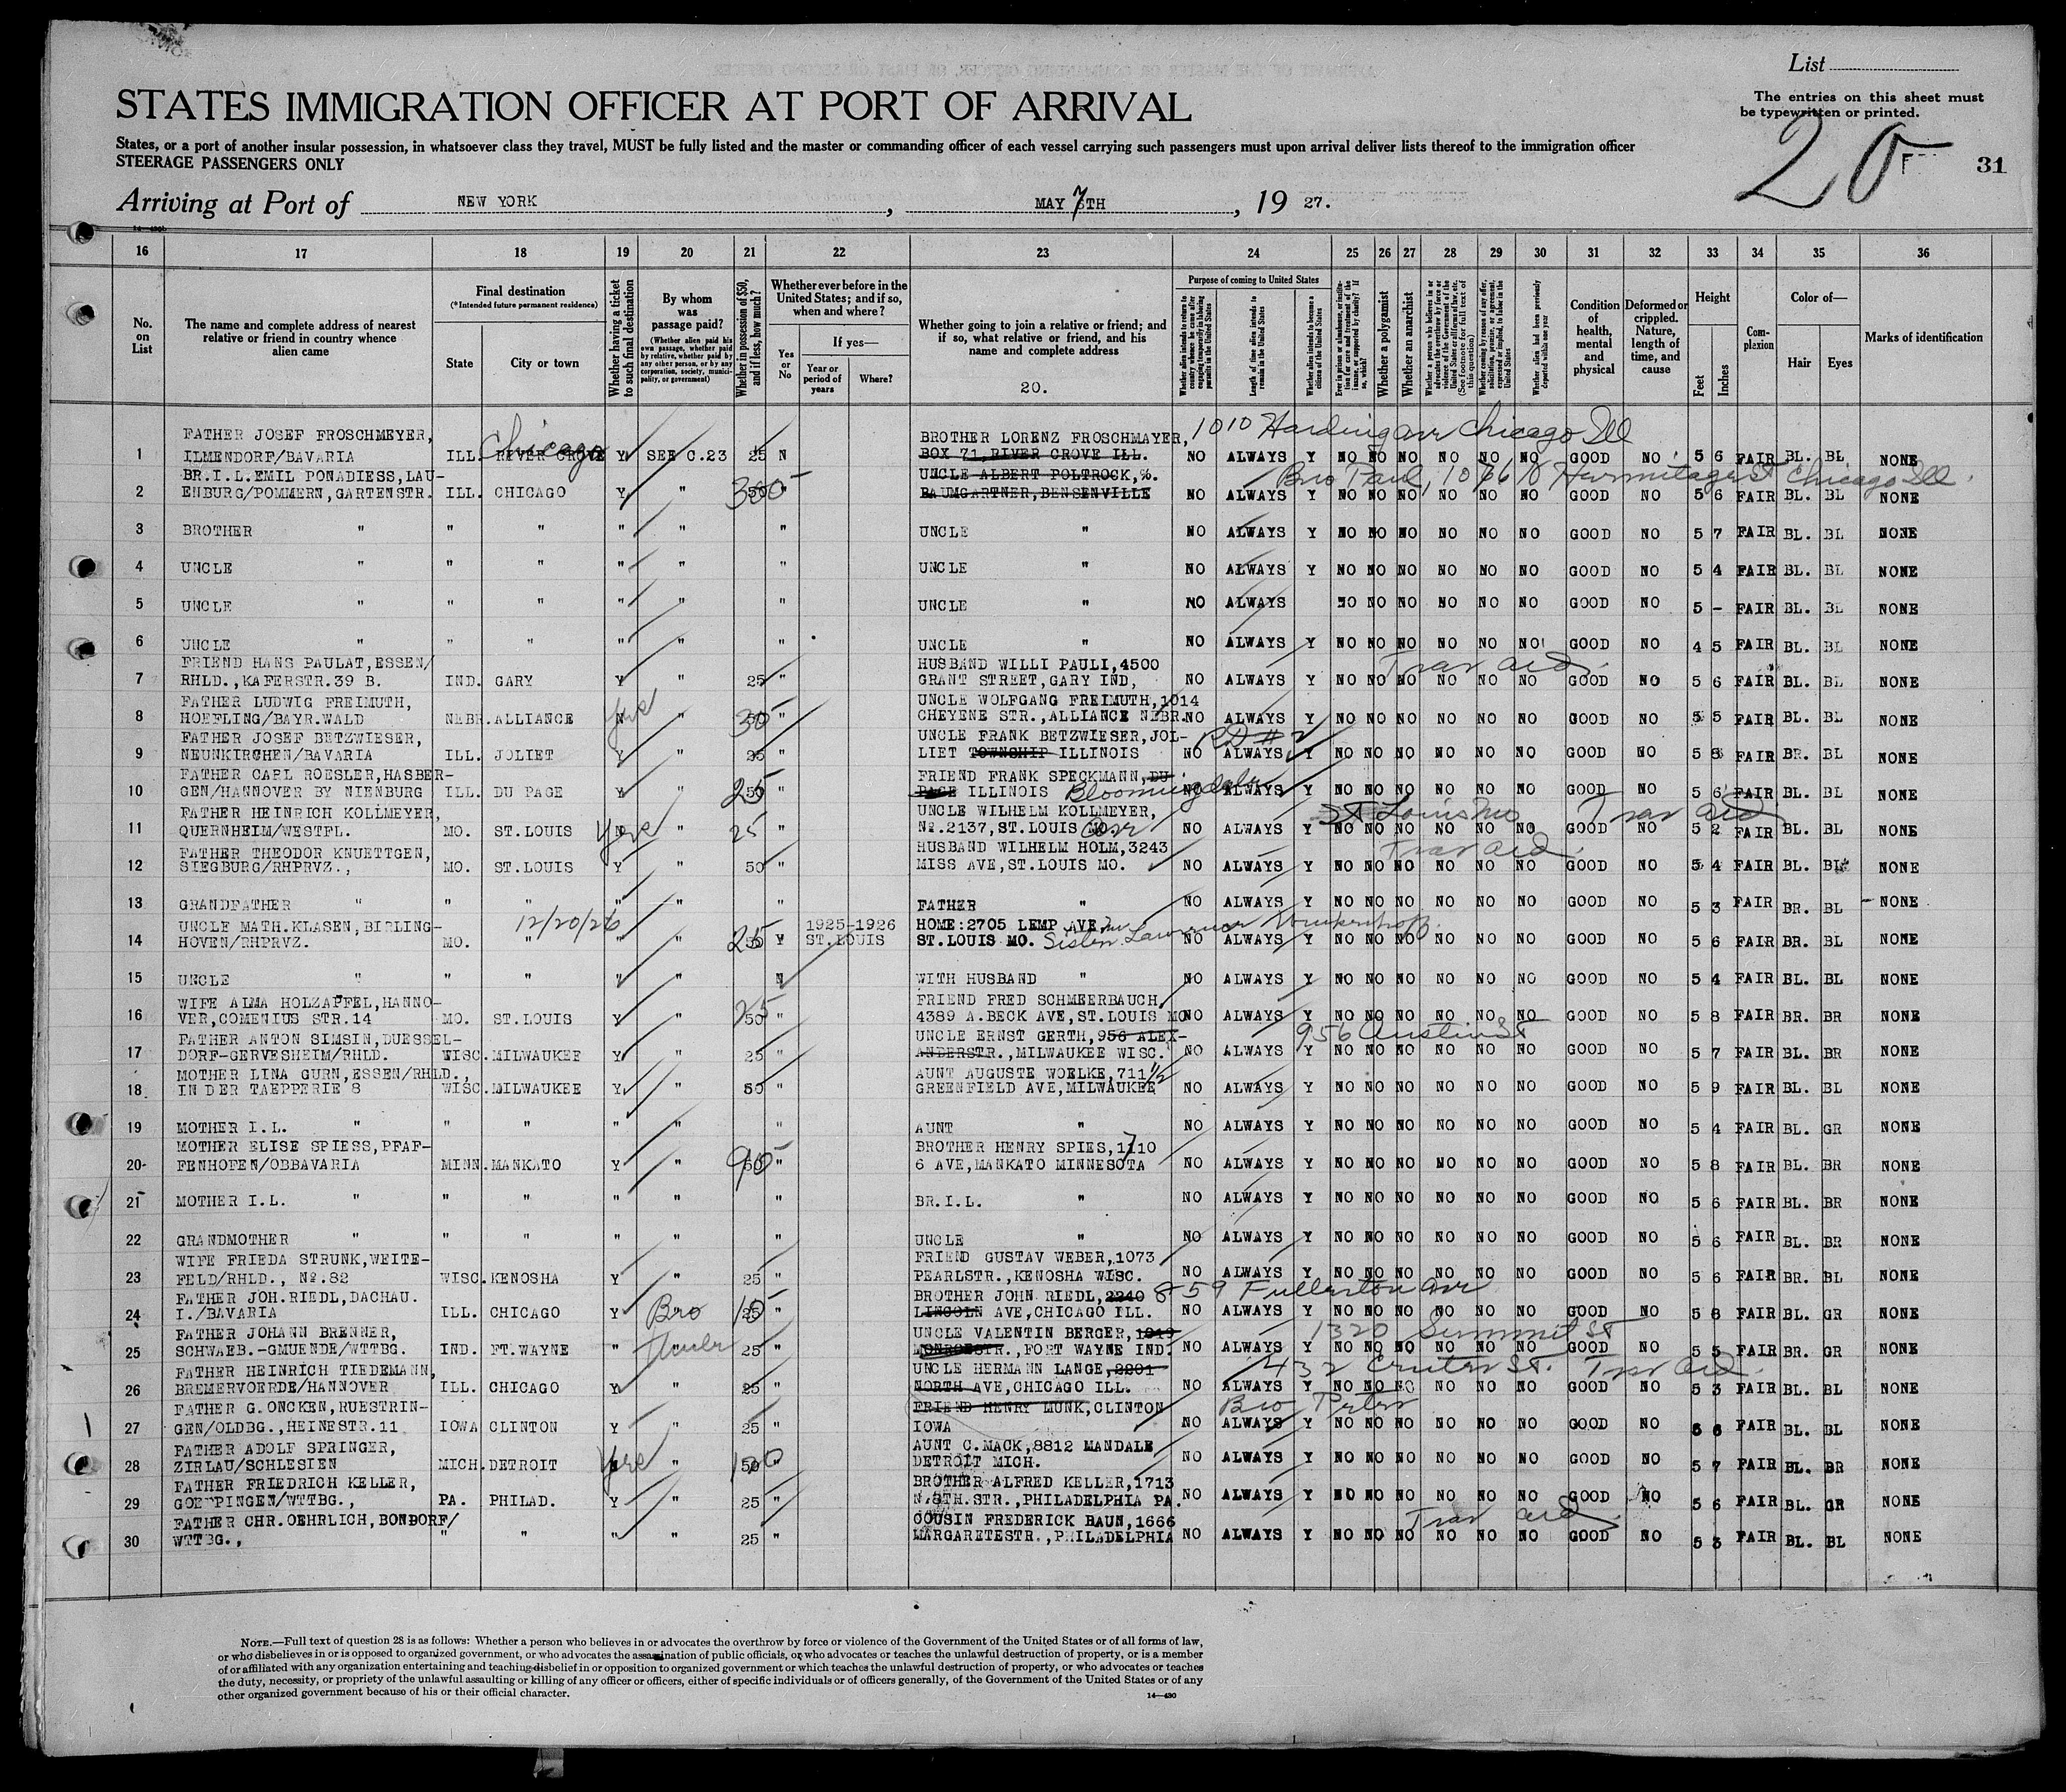 List
The entries on this sheet must
be typewritten or printed.
STATES IMMIGRATION OFFICER AT PORT OF ARRIVAL
States, or a port of another insular possession, in whatsoever class they travel, MUST be fully listed and the master or commanding officer of each vessel carrying such passengers must upon arrival deliver lists thereof to the immigration officer
STEERAGE PASSENGERS ONLY
20 31
Arriving at Port of NEW YORK, MAY 7TH, 19 27.
16 17 18 19 20 21 22 23 24 25 26 27 28 29 30 31 32 33 34 35 36
No. on List
The name and complete address of nearest relative or friend in country whence alien came
Final destination
(*Intended future permanent residence)
State
City or town
Whether having a ticket to such final destination
By whom was passage paid?
(Whether alien paid his own passage, whether paid by relative, whether paid by any other person, or by any corporation, society, municipality, or government)
Whether in possession of $50, and if less, how much?
Whether ever before in the United States; and if so, when and where?
Yes or No
If yes—
Year or period of years
Where?
Whether going to join a relative or friend; and if so, what relative or friend, and his name and complete address
20.
Purpose of coming to United States
Whether alien intends to return to country whence he came after engaging temporarily in laboring pursuits in the United States
Length of time alien intends to remain in the United States
Whether alien intends to become a citizen of the United States
Ever in prison or almshouse, or institution for care and treatment of the insane, or supported by charity? If so, which?
Whether a polygamist
Whether an anarchist
Whether a person who believes in or advocates the overthrow by force or violence of the Government of the United States or all forms of law, etc. (See footnote for full text of this question)
Whether coming by reason of any offer, solicitation, promise, or agreement, expressed or implied, to labor in the United States
Whether alien had been previously deported within one year
Condition of health, mental and physical
Deformed or crippled. Nature, length of time, and cause
Height
Feet
Inches
Complexion
Color of—
Hair
Eyes
Marks of identification
FATHER JOSEF FROSCHMEYER, Chicago BROTHER LORENZ FROSCHMAYER, 1010 Harding ave Chicago Ill
1 ILMENDORF/BAVARIA ILL. RIVER GROVE Y SEE C.23 25 N BOX 71, RIVER GROVE ILL. NO ALWAYS Y NO NO NO NO NO NO GOOD NO 5 6 FAIR BL. BL NONE
BR.I.L.EMIL PONADIESS,LAU- UNCLE ALBERT POLTROCK,%. Bro Paul, 1076 N Hermitage St Chicago Ill.
2 ENBURG/POMMERN,GARTENSTR. ILL. CHICAGO Y " 300 " BAUMGARTNER, BENSENVILLE NO ALWAYS Y NO NO NO NO NO NO GOOD NO 5 6 FAIR BL. BL NONE
3 BROTHER " " " " " " UNCLE " NO ALWAYS Y NO NO NO NO NO NO GOOD NO 5 7 FAIR BL. BL NONE
4 UNCLE " " " " " " UNCLE " NO ALWAYS Y NO NO NO NO NO NO GOOD NO 5 4 FAIR BL. BL NONE
5 UNCLE " " " " " " UNCLE " NO ALWAYS NO NO NO NO NO NO GOOD NO 5 - FAIR BL. BL NONE
6 UNCLE " " " " " " UNCLE " NO ALWAYS Y NO NO NO NO NO NO GOOD NO 4 5 FAIR BL. BL NONE
FRIEND HANS PAULAT,ESSEN/ HUSBAND WILLI PAULI,4500 Trav aid.
7 RHLD.,KAFERSTR.39 B. IND. GARY Y " 25 " GRANT STREET,GARY IND, NO ALWAYS Y NO NO NO NO NO NO GOOD NO 5 6 FAIR BL. BL NONE
FATHER LUDWIG FREIMUTH, yes UNCLE WOLFGANG FREIMUTH,1014
8 HOEFLING/BAYR.WALD NEBR. ALLIANCE N " 30 " CHEYENE STR.,ALLIANCE NEBR. NO ALWAYS Y NO NO NO NO NO NO GOOD NO 5 5 FAIR BL. BL NONE
FATHER JOSEF BETZWIESER, UNCLE FRANK BETZWIESER,JOL- RD # 2
9 NEUNKIRCHEN/BAVARIA ILL. JOLIET Y " 25 " LIET TOWNSHIP ILLINOIS NO ALWAYS Y NO NO NO NO NO NO GOOD NO 5 8 FAIR BR. BL NONE
FATHER CARL ROESLER,HASBER- FRIEND FRANK SPECKMANN,DU
10 GEN/HANNOVER BY NIENBURG ILL. DU PAGE Y " 25 " PAGE ILLINOIS Bloomingdale NO ALWAYS Y NO NO NO NO NO NO GOOD NO 5 6 FAIR BL. BL NONE
FATHER HEINRICH KOLLMEYER, UNCLE WILHELM KOLLMEYER, St Louis Mo Trav aid
11 QUERNHEIM/WESTFL. MO. ST.LOUIS yes N " 25 " No.2137,ST.LOUIS MO. ave NO ALWAYS Y NO NO NO NO NO NO GOOD NO 5 2 FAIR BL. BL NONE
FATHER THEODOR KNUETTGEN, HUSBAND WILHELM HOLM,3243 Trav aid.
12 SIEGBURG/RHPRVZ., MO. ST.LOUIS Y " 50 " MISS AVE,ST.LOUIS MO. NO ALWAYS Y NO NO NO NO NO NO GOOD NO 5 4 FAIR BL. BL NONE
13 GRANDFATHER " " " " " " FATHER NO ALWAYS Y NO NO NO NO NO NO GOOD NO 5 3 FAIR BR. BL NONE
UNCLE MATH.KLASEN,BIRLING- 12/20/26 1925-1926 HOME:2705 LEMP AVE,
14 HOVEN/RHPRVZ. MO. " " " 25 Y ST.LOUIS ST.LOUIS MO. Sister Lawrence NO ALWAYS Y NO NO NO NO NO NO GOOD NO 5 6 FAIR BR. BL NONE
15 UNCLE " " " " " N WITH HUSBAND " NO ALWAYS Y NO NO NO NO NO NO GOOD NO 5 4 FAIR BL. BL NONE
WIFE ALMA HOLZAPFEL,HANNO- FRIEND FRED SCHMEERBAUCH,
16 VER,COMENIUS STR.14 MO. ST.LOUIS Y " 25 " 4389 A.BECK AVE,ST.LOUIS MO NO ALWAYS Y NO NO NO NO NO NO GOOD NO 5 8 FAIR BR. BR NONE
FATHER ANTON SIMSIN,DUESSEL- UNCLE ERNST GERTH,956 ALEX- 956 Austin St
17 DORF-GERVESHEIM/RHLD. WISC. MILWAUKEE Y " 25 " ANDERSTR.,MILWAUKEE WISC. NO ALWAYS Y NO NO NO NO NO NO GOOD NO 5 7 FAIR BL. BR NONE
MOTHER LINA GURN,ESSEN/RHLD., AUNT AUGUSTE WOELKE,711 1/2
18 IN DER TAEPPERIE 8 WISC. MILWAUKEE Y " 50 " GREENFIELD AVE,MILWAUKEE NO ALWAYS Y NO NO NO NO NO NO GOOD NO 5 9 FAIR BL. BL NONE
19 MOTHER I.L. " " " " " " AUNT " NO ALWAYS Y NO NO NO NO NO NO GOOD NO 5 4 FAIR BL. GR NONE
MOTHER ELISE SPIESS,PFAF- BROTHER HENRY SPIES,1710
20 FENHOFEN/OBBAVARIA MINN. MANKATO Y " 90 " 6 AVE,MANKATO MINNESOTA NO ALWAYS Y NO NO NO NO NO NO GOOD NO 5 8 FAIR BL. BR NONE
21 MOTHER I.L. " " " " " " BR.I.L. " NO ALWAYS Y NO NO NO NO NO NO GOOD NO 5 6 FAIR BL. BR NONE
22 GRANDMOTHER " " " " " " UNCLE " NO ALWAYS Y NO NO NO NO NO NO GOOD NO 5 6 FAIR BL. BR NONE
WIFE FRIEDA STRUNK,WEITE- FRIEND GUSTAV WEBER,1073
23 FELD/RHLD., No.82 WISC. KENOSHA Y " 25 " PEARLSTR.,KENOSHA WISC. NO ALWAYS Y NO NO NO NO NO NO GOOD NO 5 6 FAIR BR. BL NONE
FATHER JOH.RIEDL,DACHAU. BROTHER JOHN RIEDL,2240 859 Fullerton ave
24 I./BAVARIA ILL. CHICAGO Y Bro 10 " LINCOLN AVE,CHICAGO ILL. NO ALWAYS Y NO NO NO NO NO NO GOOD NO 5 8 FAIR BL. GR NONE
FATHER JOHANN BRENNER, UNCLE VALENTIN BERGER,1319 1320 Summit St
25 SCHWAEB.-GMUENDE/WTTBG. IND. FT.WAYNE " Uncle 25 " MONROESTR.,FORT WAYNE IND. NO ALWAYS Y NO NO NO NO NO NO GOOD NO 5 5 FAIR BR. GR NONE
FATHER HEINRICH TIEDEMANN, UNCLE HERMANN LANGE,2201 1432 Center St. Trav aid.
26 BREMERVOERDE/HANNOVER ILL. CHICAGO Y " 25 " NORTH AVE,CHICAGO ILL. NO ALWAYS Y NO NO NO NO NO NO GOOD NO 5 3 FAIR BL. BL NONE
FATHER G.ONCKEN,RUESTRIN- FRIEND HENRY MUNK,CLINTON Bro Peter
27 GEN/OLDBG.,HEINESTR.11 IOWA CLINTON Y " 25 " IOWA NO ALWAYS Y NO NO NO NO NO NO GOOD NO 6 6 FAIR BL. BL NONE
FATHER ADOLF SPRINGER, AUNT C.MACK,8812 MANDALE
28 ZIRLAU/SCHLESIEN MICH. DETROIT yes " 100 " DETROIT MICH. NO ALWAYS Y NO NO NO NO NO NO GOOD NO 5 7 FAIR BL. BR NONE
FATHER FRIEDRICH KELLER, BROTHER ALFRED KELLER,1713
29 GOEPPINGEN/WTTBG., PA. PHILAD. Y " 25 " N.8TH.STR.,PHILADELPHIA PA. NO ALWAYS Y NO NO NO NO NO NO GOOD NO 5 6 FAIR BL. GR NONE
FATHER CHR.OEHRLICH,BONDORF/ COUSIN FREDERICK BAUN,1666 Trav aid.
30 WTTBG., " " " " 25 " MARGARETESTR.,PHILADELPHIA NO ALWAYS Y NO NO NO NO NO NO GOOD NO 5 3 FAIR BL. BL NONE
NOTE.—Full text of question 28 is as follows: Whether a person who believes in or advocates the overthrow by force or violence of the Government of the United States or of all forms of law,
or who disbelieves in or is opposed to organized government, or who advocates the assassination of public officials, or who advocates or teaches the unlawful destruction of property, or is a member
of or affiliated with any organization entertaining and teaching disbelief in or opposition to organized government or which teaches the unlawful destruction of property, or who advocates or teaches
the duty, necessity, or propriety of the unlawful assaulting or killing of any officer or officers, either of specific individuals or of officers generally, of the Government of the United States or of any
other organized government because of his or their official character.
14—430